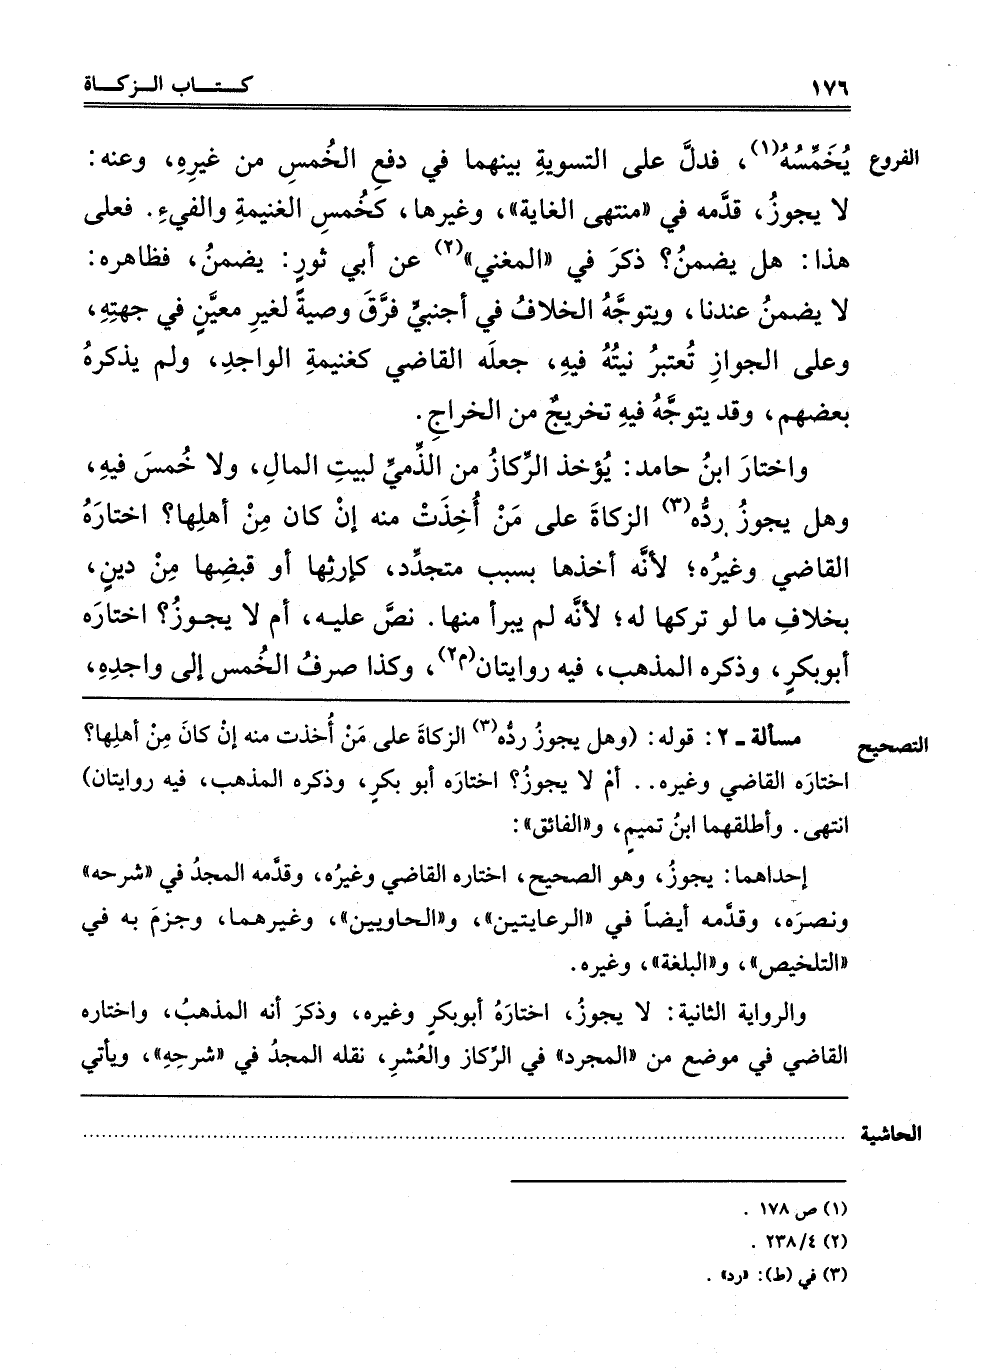 ١٧٦
كـتــاب الـزكــاة
الفروع
يُخَمِّسُهُ(١)، فدلَّ على التسويةِ بينهما في دفعِ الخُمسِ من غيرِهِ، وعنه:
لا يجوزُ، قدَّمه في «منتهى الغاية»، وغيرها، كخُمسِ الغنيمةِ والفيءِ. فعلى
هذا: هل يضمنُ؟ ذكرَ في «المغني»(٢) عن أبي ثورٍ: يضمنُ، فظاهره:
لا يضمنُ عندنا، ويتوجَّهُ الخلافُ في أجنبيٍّ فرَّقَ وصيةً لغيرِ معيَّنٍ في جهتِهِ،
وعلى الجوازِ تُعتبرُ نيتُهُ فيهِ، جعلَه القاضي كغنيمةِ الواجدِ، ولم يذكرهُ
بعضهم، وقد يتوجَّهُ فيهِ تخريجٌ من الخراجِ.
واختارَ ابنُ حامد: يُؤخذ الرِّكازُ من الذِّميِّ لبيتِ المالِ، ولا خُمسَ فيهِ،
وهل يجوزُ ردُّه(٣) الزكاةَ على مَنْ أُخِذَتْ منه إنْ كان مِنْ أهلِها؟ اختارَهُ
القاضي وغيرُه؛ لأنَّه أخذها بسبب متجدِّد، كإرثِها أو قبضِها مِنْ دينٍ،
بخلافِ ما لو تركها له؛ لأنَّه لم يبرأ منها. نصَّ عليـه، أم لا يجـوزُ؟ اختارَه
أبوبكرٍ، وذكره المذهب، فيه روايتان(م٢)، وكذا صرفُ الخُمس إلى واجدِهِ،
التصحيح
مسألة ـ ٢: قوله: (وهل يجوزُ ردُّه(٣) الزكاةَ على مَنْ أُخذت منه إنْ كانَ مِنْ أهلِها؟
اختارَه القاضي وغيره.. أمْ لا يجوزُ؟ اختارَه أبو بكرٍ، وذكره المذهب، فيه روايتان)
انتهى. وأطلقهما ابنُ تميمٍ، و«الفائق»:
إحداهما: يجوزُ، وهو الصحيح، اختاره القاضي وغيرُه، وقدَّمه المجدُ في «شرحه»
ونصرَه، وقدَّمه أيضاً في «الرعايتين»، و«الحاويين»، وغيرهما، وجزمَ به في
«التلخيص»، و«البلغة»، وغيره.
والرواية الثانية: لا يجوزُ، اختارَهُ أبوبكرٍ وغيره، وذكرَ أنه المذهبُ، واختاره
القاضي في موضع من «المجرد» في الرِّكاز والعُشرِ، نقله المجدُ في «شرحِهِ»، ويأتي
الحاشية
(١) ص ١٧٨ .
(٢) ٢٣٨/٤ .
(٣) في (ط): «رد» .